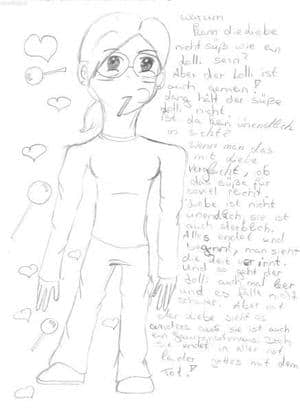 warum
kann die Liebe
nicht süß wie ein
Lolli sein?
Aber der Lolli ist
auch gemein!
lang hält der süße
Lolli nicht
ist da kein unendlich
in sicht?
Wenn man das
mit Liebe
vergleicht, ob
das süße für
soviel reicht.
Liebe ist nicht
unendlich, sie ist
auch sterblich.
Alles endet und
beginnt, man sieht
die Zeit verinnt.
und so geht der
Lolli auch mal leer
und es fällt nicht
schwer. Aber mit
der Liebe sieht es
anders aus, sie ist auch
ein
Sie endet in aller not
leider gottes mit dem
Tot!